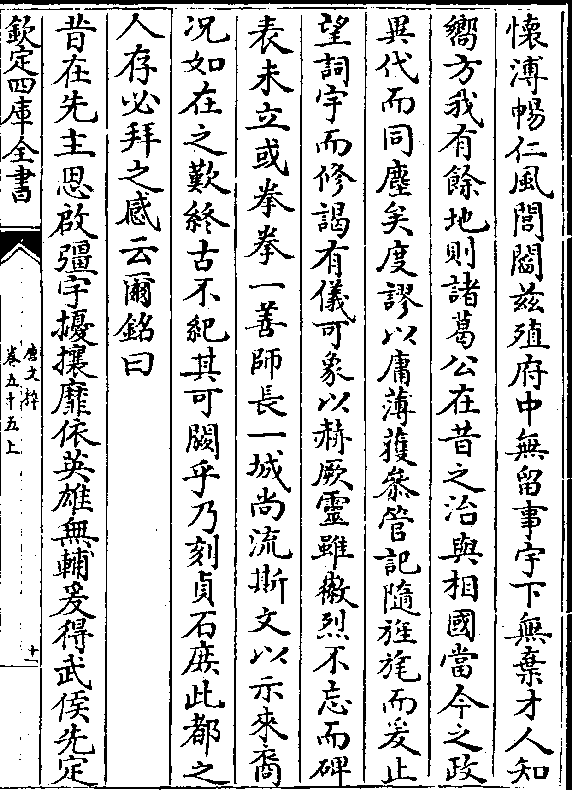 懷溥暢仁風閭閻兹殖府中無留事宇下無棄才人知
嚮方我有餘地則諸葛公在昔之治與相國當今之政
異代而同塵矣度謬以庸薄獲叅管記隨旌旄而爰止
望祠宇而修謁有儀可象以赫厥靈雖徽烈不忘而碑
表未立或拳拳一善師長一城尚流斯文以示來裔
况如在之歎終古不紀其可闕乎乃刻貞石庶此都之
人存必拜之感云爾銘曰
昔在先主思啟疆宇擾攘靡依英雄無輔爰得武侯先定
欽定四庫全書
唐文粹
卷五十五上
十一